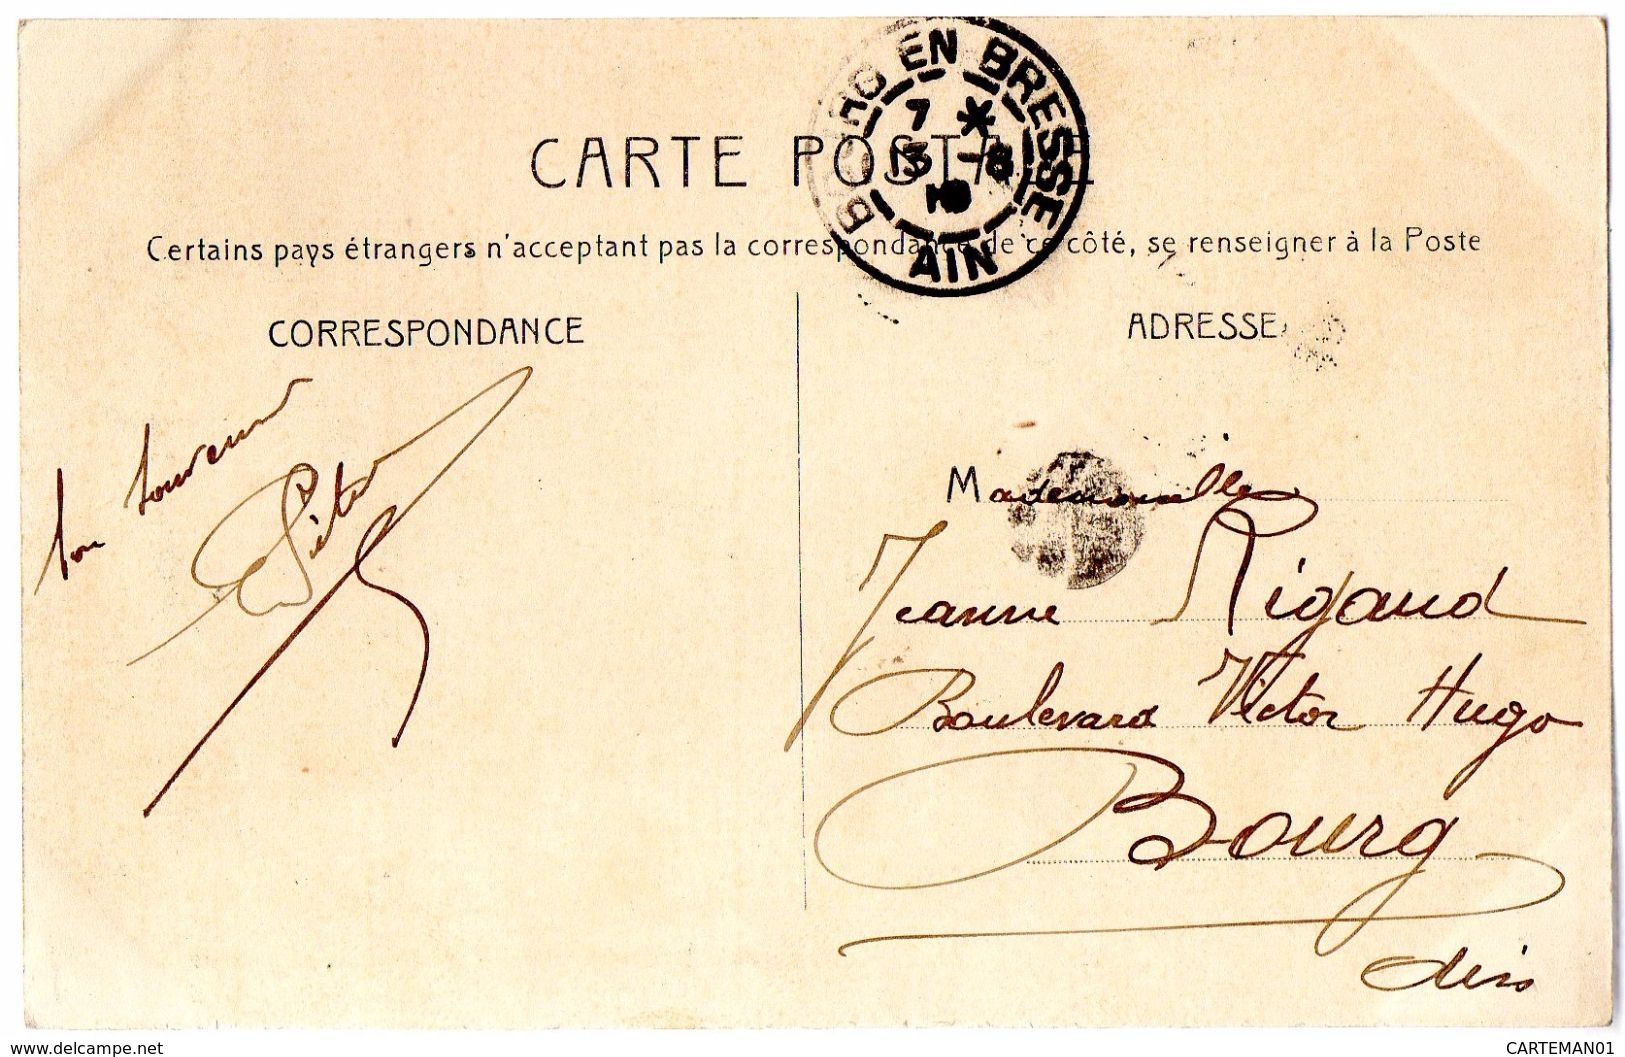 BOURG EN BRESSE
7 *
13 -8
10
AIN
CARTE POSTALE
Certains pays étrangers n'acceptant pas la correspondance de ce côté, se renseigner à la Poste
CORRESPONDANCE
ADRESSE
Bon Souvenir
Mademoiselle
Jeanne Rigaud
Boulevard Victor Hugo
Bourg
delcampe.net
CARTEMAN01